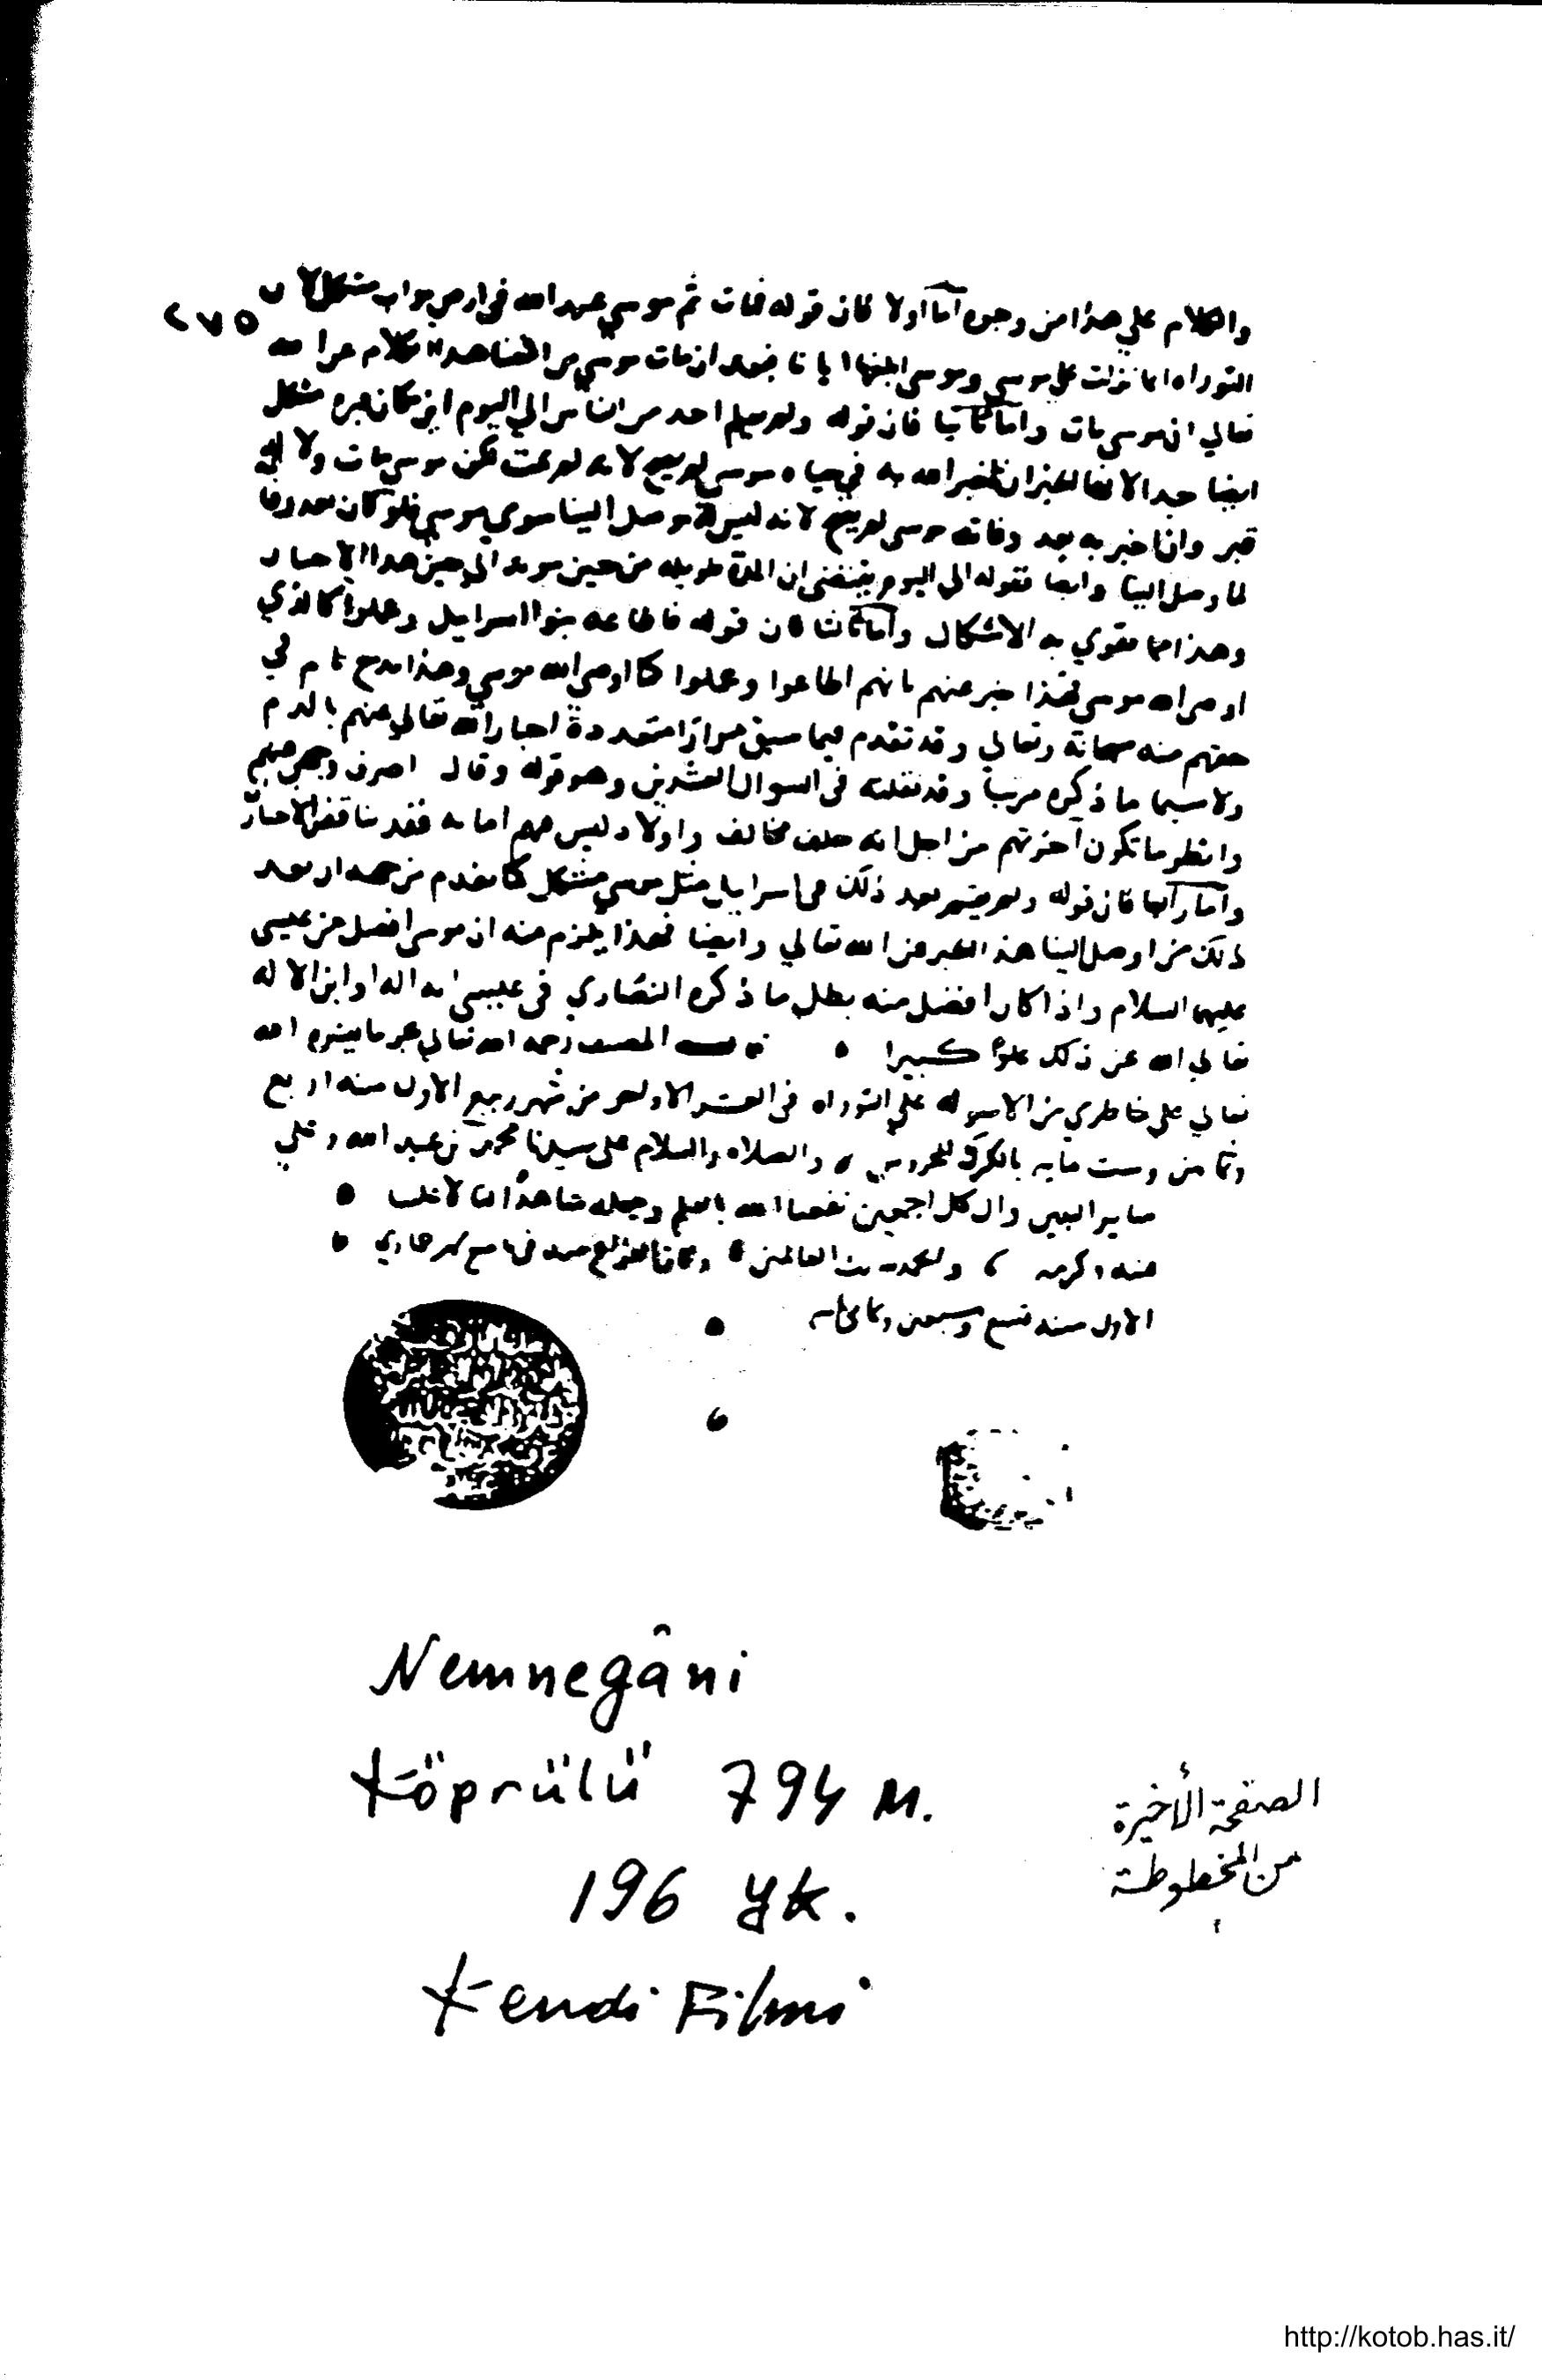 والكلام علي هذا من وجوه أما أولا فان قوله فمات ثم موسي عبد الله في ارض مواب مشكل لان
٢٧٥
التوراه انما نزلت علي موسي وموسي ابلغها ايانا فبعد ان مات موسي من الشاهد كلام عن الله
تعالي ان موسي مات وأما ثانيا فان قوله ولم يعلم احد من الناس الي اليوم اين مكان قبره مشكل
ايضا جدا لانها الخبر ان اخبر الله به في حياه موسي لم يصح لانه لم يمت موسي مات ولا له
قبر وان اخبر به بعد وفاته موسي لم يصح لانه ليس موصل الينا سوي موسي فلو كان بعد وفا
لما وصل الينا وايضا فقوله الي اليوم يقتضي ان المدة طويله من حين موته الي حين هذا الاخبار
وهذا مما يقوي به الاشكال وأما ثالثا فان قوله فاطاعه بنوا اسرايل وعملوا كالذي
اوصي الله موسي فهذا خبر عنهم بانهم اطاعوا وعملوا كما اوصي الله موسي وهذا مدح تام في
حقهم منه سبحانه وتعالي وقد تقدم فيما سبق مرارا متعددة اخبار الله تعالي عنهم بالذم
ولا سيما ما ذكره قريبا وقد نقلته في السوال العشرين وهو قوله وقال اصرف وجهي عنهم
وانظر ما تكون آخرتهم من اجل انه خلف مخالف واولاد ليس فيهم امانه فقد تناقض الاخبار
وأما رابعا فان قوله ولم يقم بعد ذلك في اسرايل مثل موسي مشكل كما تقدم من جهه ان بعد
ذلك من اوصل الينا هذا الخبر عن الله تعالي وايضا فهذا يلزم منه ان موسي افضل من عيسى
عليهما السلام واذا كان افضل منه بطل ما ذكره النصاري في عيسى انه اله او ابن الاله
تعالي الله عن ذلك علوا كبيرا قال المصنف رحمه الله تعالي نجز ما يسره الله
تعالي علي خاطري من الاسوله علي التوراه في العشر الاول من شهر ربيع الاول سنه اربع
وثمانين وست مايه بالكرك المحروس والصلاه والسلام علي سيدنا محمد بن عبد الله وعلي
ساير النبيين وال كل اجمعين نفعنا الله بالعلم وجعله شاهدا لنا لا علينا
منه وكرمه والحمد لله رب العالمين وكان الفراغ منه في تاسع شهر جمادي
الاول سنه تسع وسبعين وثمانمايه
Nemnegâni
Köprülü 794 M.
196 yk.
Kendi Filmi
الصفحة الأخيرة
من المخطوطة
http://kotob.has.it/